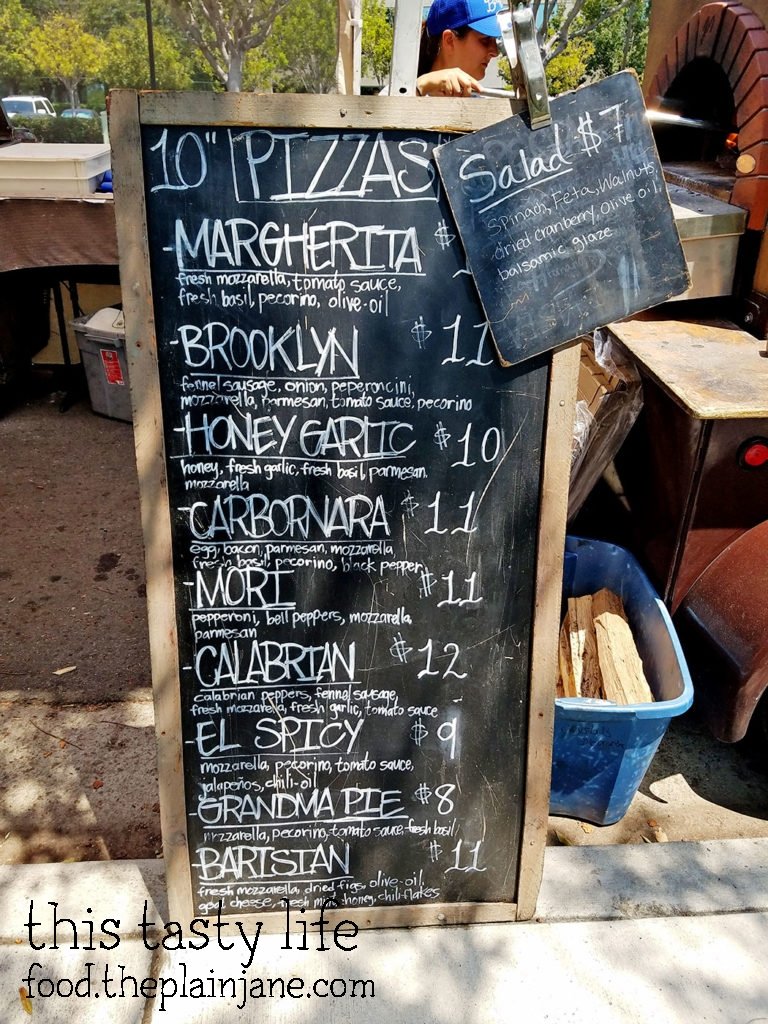 10" PIZZAS
-MARGHERITA $
fresh mozzarella, tomato sauce,
fresh basil, pecorino, olive-oil
-BROOKLYN $11
fennel sausage, onion, peperoncini,
mozzarella, parmesan, tomato sauce, pecorino
-HONEY GARLIC $10
honey, fresh garlic, fresh basil, parmesan,
mozzarella
-CARBORNARA $11
egg, bacon, parmesan, mozzarella,
fresh basil, pecorino, black pepper
-MORI $11
pepperoni, bell peppers, mozzarella,
parmesan
-CALABRIAN $12
calabrian peppers, fennel sausage,
fresh mozzarella, fresh garlic, tomato sauce
-EL SPICY $9
mozzarella, pecorino, tomato sauce,
jalapeños, chili-oil
-GRANDMA PIE $8
mozzarella, pecorino, tomato sauce, fresh basil
-BARISIAN $11
fresh mozzarella, dried figs, olive-oil,
goat cheese, fresh mint, honey, chili-flakes
Salad $7
Spinach, Feta, Walnuts,
dried cranberry, olive oil,
balsamic glaze
this tasty life
food.theplainjane.com